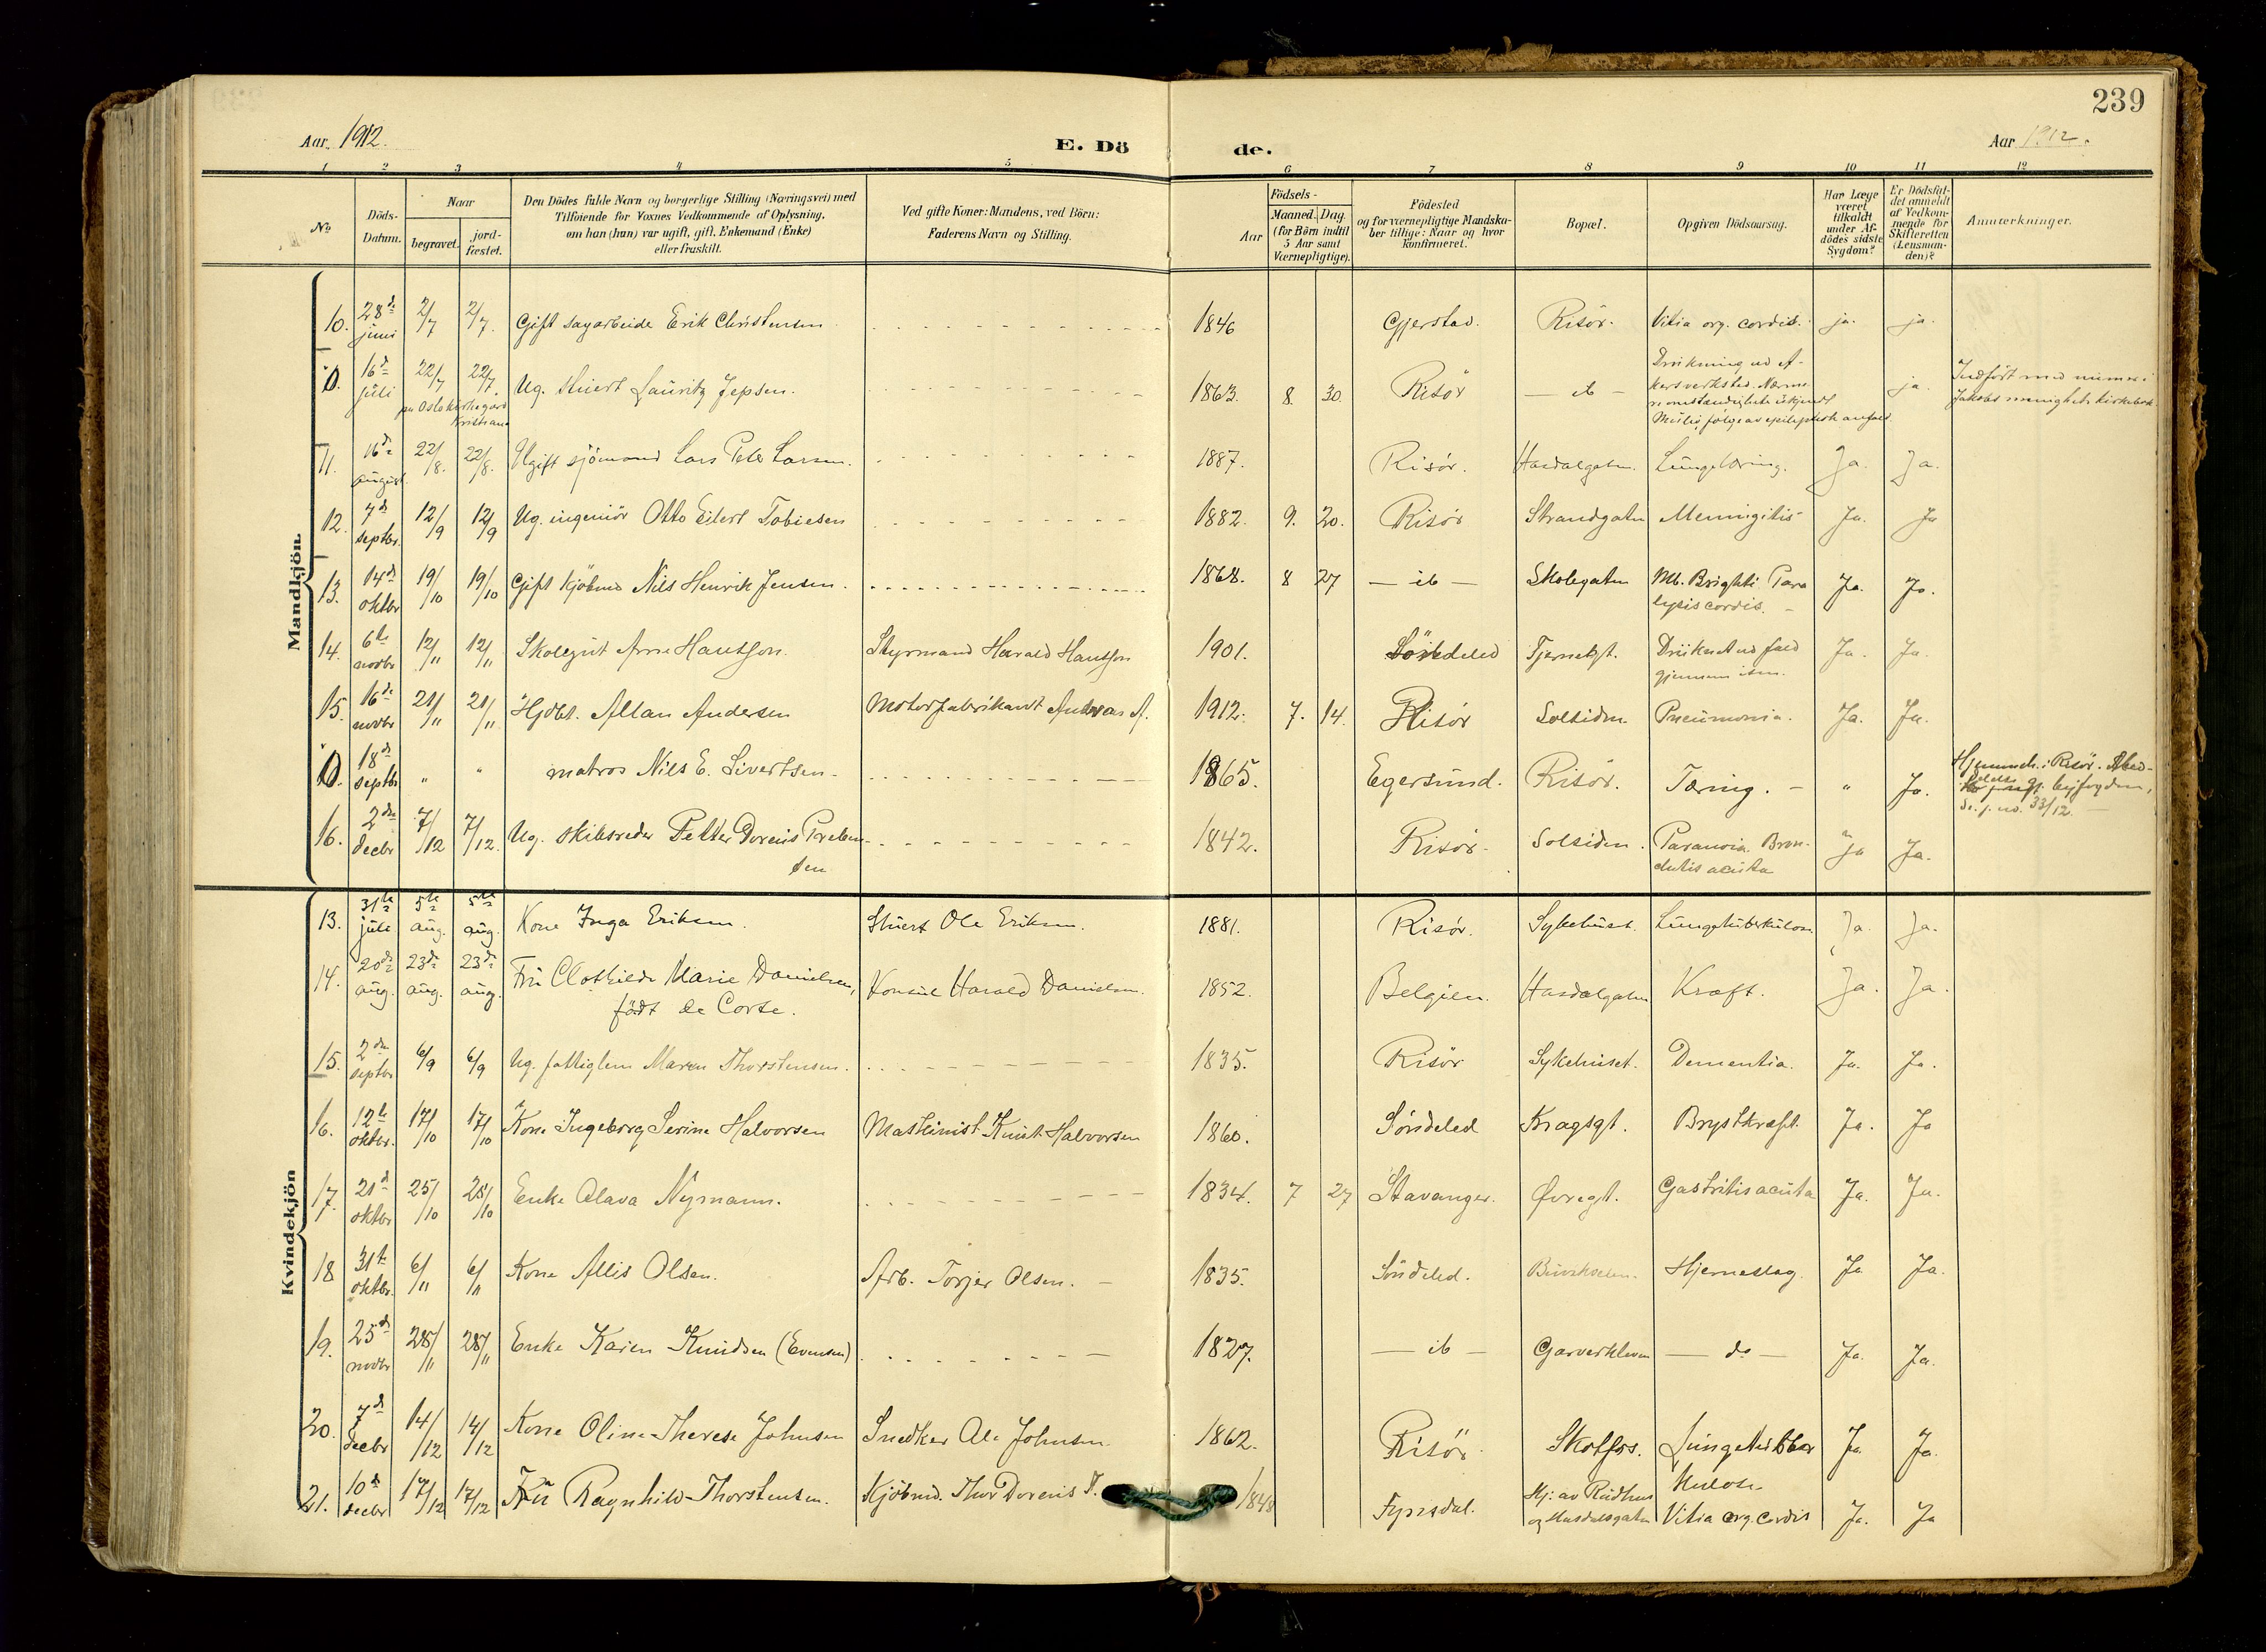 239
Aar 1912.
E. Dö
de.
Aar 1912.
1 2 3 4 5 6 7 8 9 10 11 12
No
Döds-Datum.
Naar
begravet.
jord-fæstet.
Den Dödes fulde Navn og borgerlige Stilling (Næringsvei) med
Tilföiende for Voxnes Vedkommende af Oplysning,
om han (hun) var ugift, gift, Enkemand (Enke)
eller fraskilt.
Ved gifte Koner: Mandens, ved Börn:
Faderens Navn og Stilling.
Födsels-
Aar
Maaned. Dag.
(for Börn indtil
5 Aar samt
Værnepligtige).
Födested
og for værnepligtige Mandska-
ber tillige: Naar og hvor
konfirmeret.
Bopæl.
Opgiven Dödsaarsag.
Har Læge
været
tilkaldt
under Af-
dödes sidste
Sygdom?
Er Dödsfal-
det anmeldt
af Vedkom-
mende for
Skifteretten
(Lensman-
den)?
Anmærkninger.
Mandkjön.
10. 28de juni 2/7 2/7. Gift sagarbeide Erik Christensen 1846 Gjerstad. Risör. Vitia org. cordis. ja. ja.
0. 16de juli 22/7 22/7. Ug. stuert Lauritz Jepsen. 1863. 8. 30. Risör — ib — Drukning ved A-
kers verksted. Nærme-
re omstændigheter ukjendt
Mulig følge av epileptisk anfald. ja. Indført med nummer i
Jakobs menighets kirkebok.
paa Oslo kirkegård
Kristiania
11. 16de august. 22/8. 22/8. Ugift sjömand Lars Peter Larsen. 1887. Risör. Hasdalgaten. Lungetæring. Ja. Ja.
12. 7de septbr. 12/9 12/9 Ug. ingeniör Otto Eilert Tobiesen 1882. 9. 20. Risör Strandgaten Meningitis Ja. Ja
13. 14de oktbr 19/10 19/10 Gift kjöbmd Nils Henrik Jensen. 1868. 8 27 — ib — Skolegaten Mb. Brighti Para
lysis cordis. Ja. Ja.
14. 6te novbr 12/11 12/11 Skolegut Arne Hansson. Styrmand Harald Hansson 1901. Söndeled Tjernetgt. Druknet ved fald
gjennem isen. Ja. Ja.
15. 16de novbr 21/11 21/11 Hjdbt. Allan Andersen Motorfabrikant Andreas A. 1912. 7. 14. Risör Solsiden Pneumonia. Ja. Ja.
0. 18de septbr " " matros Nils E. Sivertsen. 1865. Egersund. Risör. Tæring. " Ja. Hjemmeh. i Risör.
byfogden,
33/12.
16. 2den decbr 7/12 7/12. Ug. skibsreder Petter Dorenis Preben-
sen 1842. Risör. Solsiden. Paranoia. Bron-
chitis acuta Ja Ja.
Kvindekjön
13. 31te juli 5te aug. 5te aug. Kone Inga Eriksen. Stuert Ole Eriksen. 1881. Risör. Sykehuset. Lungetuberkulose Ja. Ja.
14. 20de aug. 23de aug. 23de aug. Fru Clothilde Marie Danielsen,
födt de Corte. Konsul Harald Danielsen. 1852. Belgien. Hasdalgaten Kræft. Ja. Ja.
15. 2den septbr 6/9 6/9 Ug. fattiglem Maren Thorstensen. 1835. Risör Sykehuset. Dementia. Ja. Ja.
16. 12te oktbr. 17/10 17/10 Kone Ingeborg Serine Halvorsen Maskinist Knut Halvorsen 1860. Söndeled Kragsgt. Brystkræft. Ja. Ja
17. 21de oktbr 25/10 25/10 Enke Alava Nymann. 1834. 7 27 Stavanger. Øvregt. Gastritis acuta Ja. Ja.
18 31te oktbr. 6/11 6/11 Kone Allis Olsen. Arb. Torjer Olsen. 1835. Söndeled. Hjerneslag. Ja Ja.
19. 25de novbr 28/11 28/11 Enke Karen Knudsen (Evensen) 1827. — ib — Garverkleven — do — Ja. Ja.
20. 7de decbr 14/12 14/12 Kone Oline Therese Johnsen Snedker Ole Johnsen. 1862. Risör. Skotfos. Lungetuber
kulose Ja. Ja.
21. 10de decbr 17/12 17/12 Fru Ragnhild Thorstensen. Kjöbmd. Thor Dorenis T. 1848 Fyresdal. Hj: av Raadhus
og Hasdalsgaten Vitia org. cordis Ja. Ja